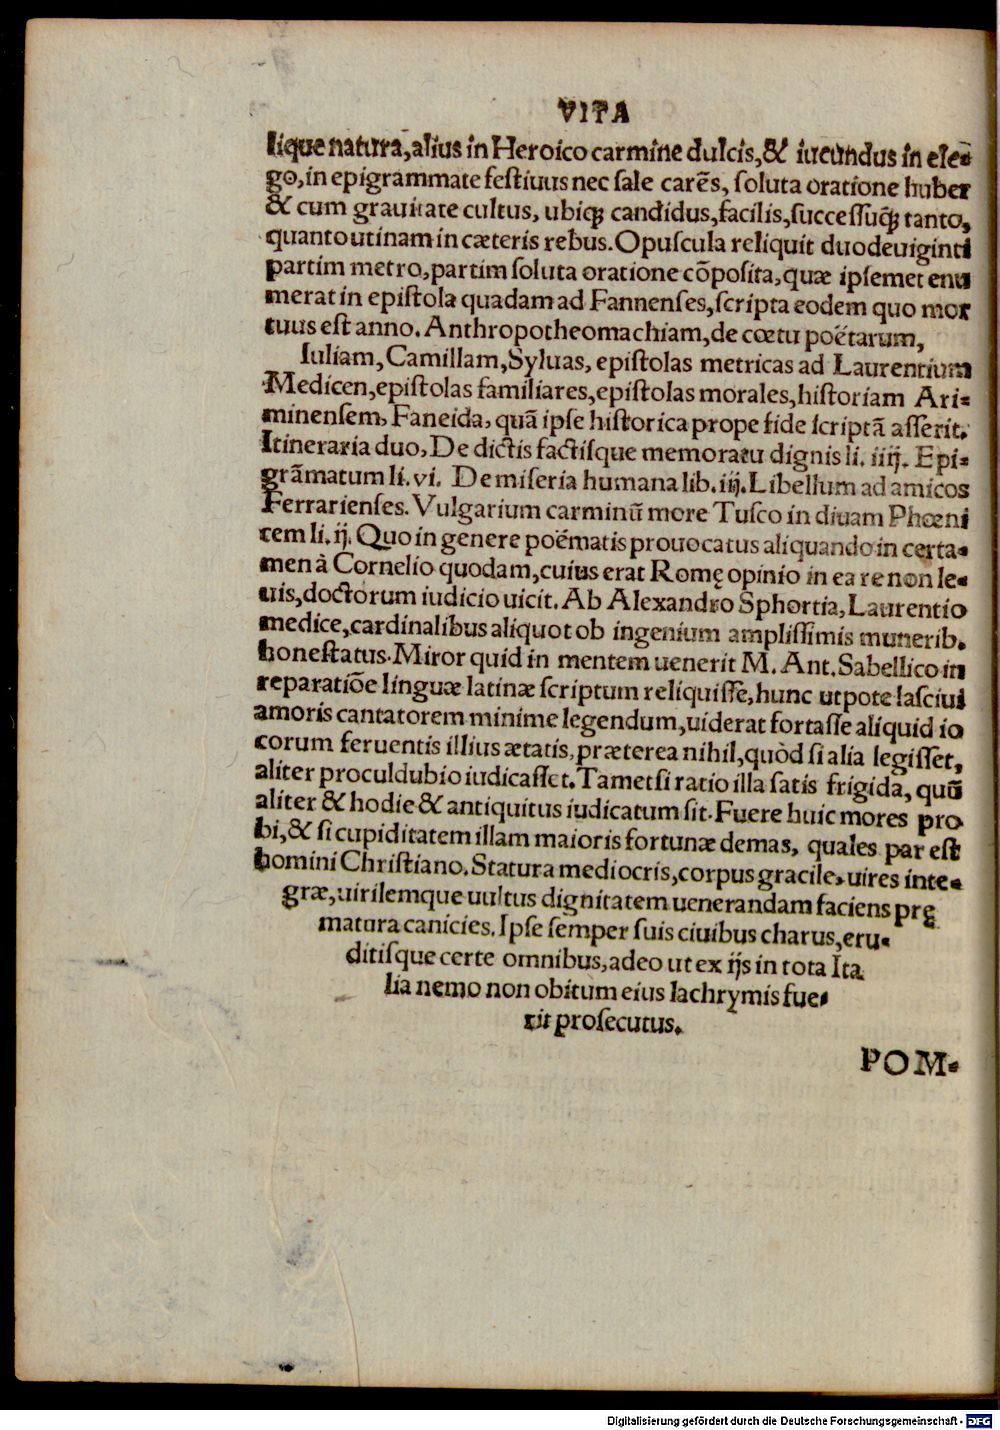 VITA
lique natura, alius in Heroico carmine dulcis, & iucundus in ele-
go, in epigrammate festiuus nec sale carẽs, soluta oratione huber
& cum grauitate cultus, ubiqꝫ candidus, facilis, successuqꝫ tanto,
quanto utinam in cæteris rebus. Opuscula reliquit duodeuiginti
partim metro, partim soluta oratione cõposita, quæ ipsemet enu
merat in epistola quadam ad Fannenses, scripta eodem quo mor
tuus est anno. Anthropotheomachiam, de cœtu poëtarum,
Iuliam, Camillam, Syluas, epistolas metricas ad Laurentium
Medicen, epistolas familiares, epistolas morales, historiam Ari-
minensem, Faneida, quã ipse historica prope fide scriptã asserit.
Itineraria duo, De dictis factisque memoratu dignis li. iiij. Epi-
grãmatum li. vi. De miseria humana lib. iij. Libellum ad amicos
Ferrarienses. Vulgarium carminũ more Tusco in diuam Phœni
cem li. ij. Quo in genere poëmatis prouocatus aliquando in certa-
men à Cornelio quodam, cuius erat Romę opinio in ea re non le-
uis, doctorum iudicio uicit. Ab Alexandro Sphortia, Laurentio
medice, cardinalibus aliquot ob ingenium amplissimis munerib.
honestatus. Miror quid in mentem uenerit M. Ant. Sabellico in
reparatiõe linguæ latinæ scriptum reliquisse, hunc utpote lasciui
amoris cantatorem minime legendum, uiderat fortasse aliquid io
corum feruentis illius ætatis, præterea nihil, quòd si alia legisset,
aliter proculdubio iudicasset. Tametsi ratio illa satis frigida, quũ
aliter & hodie & antiquitus iudicatum sit. Fuere huic mores pro
bi, & si cupiditatem illam maioris fortunæ demas, quales par est
homini Christiano. Statura mediocris, corpus gracile, uires inte-
græ, uirilemque uultus dignitatem uenerandam faciens prę
matura canicies. Ipse semper suis ciuibus charus, eru-
ditisque certe omnibus, adeo ut ex ijs in tota Ita
lia nemo non obitum eius lachrymis fue-
rit prosecutus.
POM-
Digitalisierung gefördert durch die Deutsche Forschungsgemeinschaft - DFG